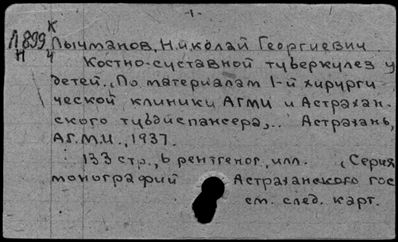 - 1 -
К
Л899 Лычманов, Николай Георгиевич
Н Ч Костно-суставной туберкулез у
детей. „По материалам 1-й хирурги-
ческой клиники АГМИ и Астрахан-
ского тубдиспансера„.. Астрахань,
А.Г.М.И., 1937.
133 стр., 6 рентгеног., илл. (Серия
монографий Астраханского гос
см. след. карт.